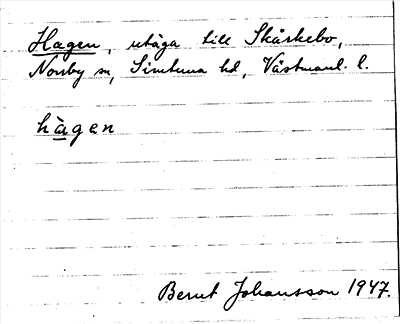 Hagen, utäga till Skårkebo,
Norrby sn, Simtuna hd, Västmanl. l.
hàgen
Bernt Johansson 1947.